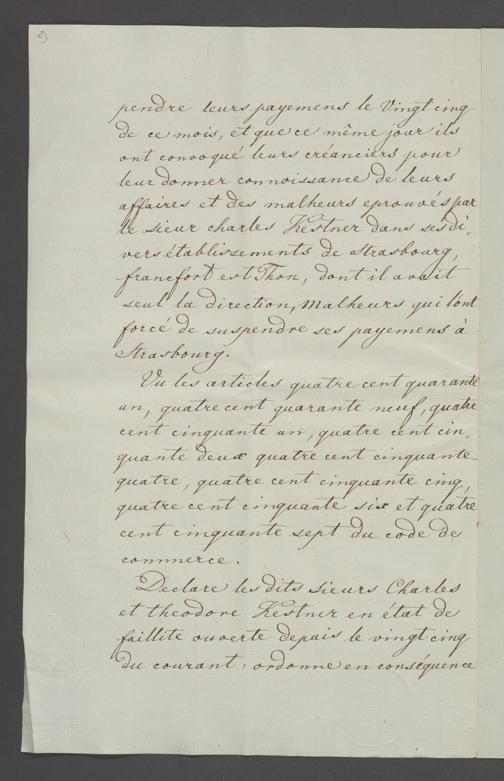 9
pendre leurs payemens le Vingt cinq
de ce mois, et que ce même jour ils
ont convoqué leurs créanciers pour
leur donner connoissance de leurs
affaires et des malheurs eprouvés par
le sieur charles Kestner dans ses di,
vers établissements de Strasbourg,
francfort est Thon, dont il avait
seul la direction, Malheurs qui l'ont
forcé de suspendre ses payemens à
Strasbourg.
Vu les articles quatre cent quarante
un, quatre cent quarante neuf, quatre
cent cinquante un, quatre cent cin,
quante deux quatre cent cinquante
quatre, quatre cent cinquante cinq,
quatre cent cinquante six et quatre
cent cinquante sept du code de
commerce.
Declare les dits sieurs Charles
et theodore Kestner en état de
faillite ouverte depuis le vingt cinq
du courant : ordonne en conséquence